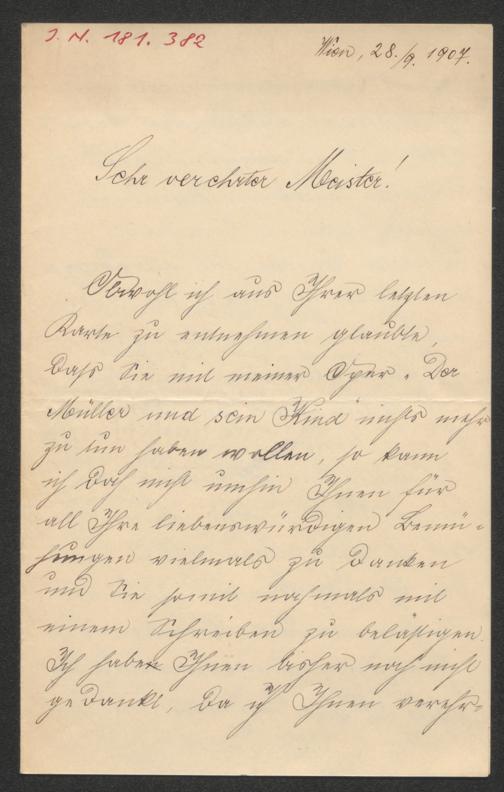 J. N. 181. 382
Wien, 28./9. 1907.
Sehr verehrter Meister!
Obwohl ich aus Ihrer letzten
Karte zu entnehmen glaubte,
daß Sie mit meiner Oper „Der
Müller und sein Kind" nichts mehr
zu tun haben wollen, so kann
ich doch nicht umhin Ihnen für
all Ihre liebenswürdigen Bemü-
hungen vielmals zu danken
und Sie somit nochmals mit
einem Schreiben zu belästigen.
Ich habe Ihnen bisher noch nicht
gedankt, da ich Ihnen verehr-